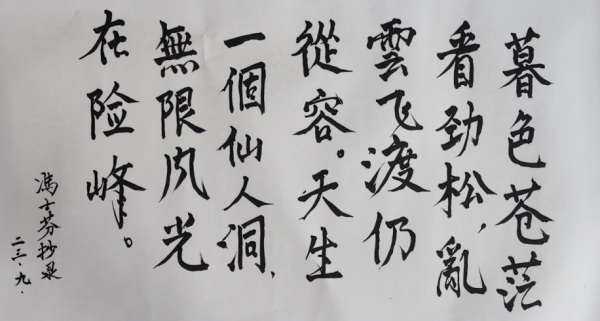 暮色苍茫
看劲松,亂
雲飞渡仍
從容。天生
一個仙人洞,
無限风光
在险峰。
馮士芬抄录
二三.九.